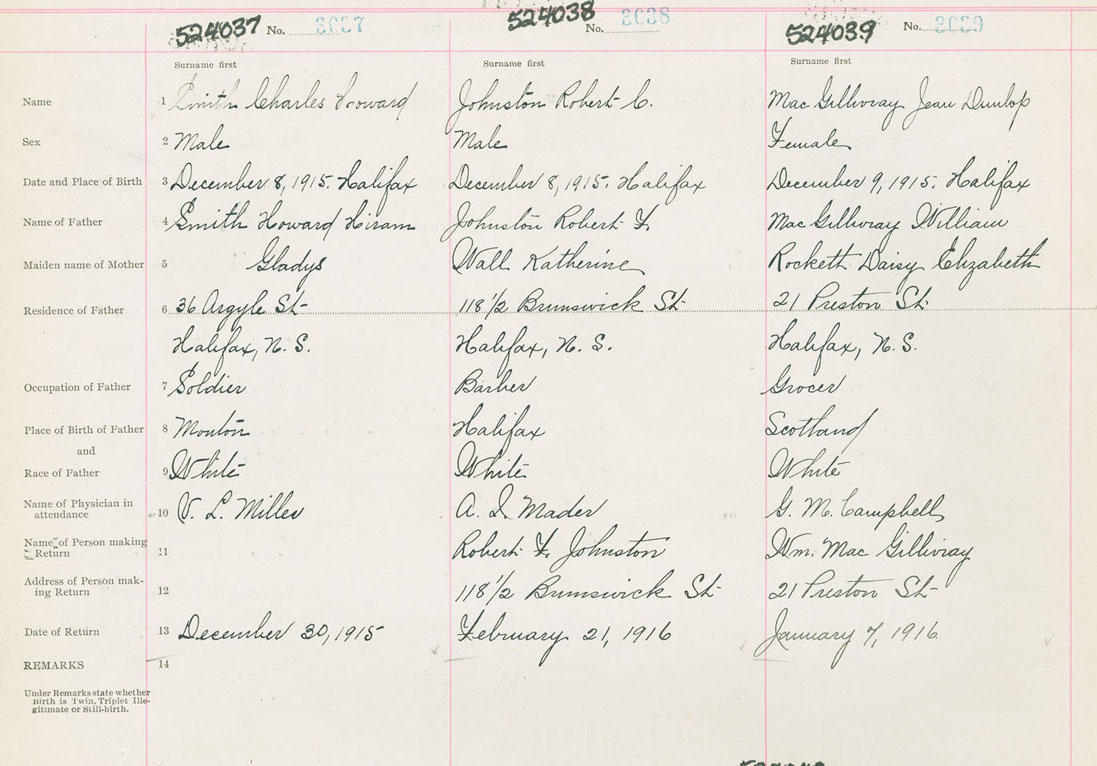 524037 No. 3037 524038 No. 3038 524039 No. 3039
Surname first Surname first Surname first
Name 1 Smith Charles Howard Johnston Robert C. Mac Gillivray Jean Dunlop
Sex 2 Male Male Female
Date and Place of Birth 3 December 8, 1915. Halifax December 8, 1915. Halifax December 9, 1915. Halifax
Name of Father 4 Smith Howard Hiram Johnston Robert F. Mac Gillivray William
Maiden name of Mother 5 Gladys Wall Katherine Rockett Daisy Elizabeth
Residence of Father 6 36 Argyle St. 118 1/2 Brunswick St. 21 Preston St.
Halifax, N. S. Halifax, N. S. Halifax, N.S.
Occupation of Father 7 Soldier Barber Grocer
Place of Birth of Father 8 Moncton Halifax Scotland
and
Race of Father 9 White White White
Name of Physician in
attendance 10 V. L. Miller A. I. Mader G. M. Campbell
Name of Person making
Return 11 Robert F. Johnston Wm. Mac Gillivray
Address of Person mak-
ing Return 12 118 1/2 Brunswick St. 21 Preston St.
Date of Return 13 December 30, 1915 February 21, 1916 January 7, 1916
REMARKS 14
Under Remarks state whether
Birth is Twin, Triplet Ille-
gitimate or Still-birth.